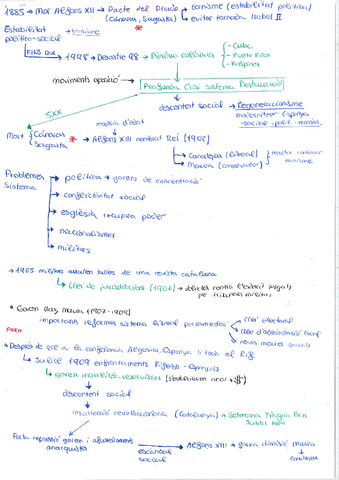 1885 → Mor Alfons XII → Pacte del Prado → tornisme (estabilitat política)
(Cánovas, Sagasta) evitar tornada Isabel II
Estabilitat → tornisme
político-social
FINS QUE → 1898 → Desastre 98 → Pèrdua colònies
- Cuba
- Puerto Rico
- Filipines
moviments oposició → Profunda Crisi sistema Restauració
descontent social → Regeneracionisme
modernitzar Espanya
-social, polít.
SXX
Mort Cánovas
Sagasta
majoria d'edat
→ Alfons XIII nombrat Rei (1902)
→ Canalejas (liberal)
→ Maura (conservador)
tornisme
Problemes
Sistema
→ política → governs de concentració
→ conflictivitat social
→ església recupera poder
→ nacionalismes
→ militars
→ 1905 militars assalten tallers de una revista catalana
→ Llei de jurisdiccions (1906) → delictes contra l'exèrcit jutjats
per tribunals militars
• Govern llarg Maura (1907-1909)
importants reformes sistema liberal parlamentari
llei electoral
llei d'administració local
noves mesures socials
PERO
→ Després de que a la conferència Algeciras, Espanya
→ Juliol 1909 enfrontaments Rifenys - Espanyols
→ govern mobilitza reservistes
descontent social
insurrecció revolucionària (Catalunya) → Setmana Tràgica Bcn
Juliol 1909
Forta repressió govern i afusellaments
anarquistes
escàndol
social
→ Alfons XIII → força dimissió Maura
→ Canalejas